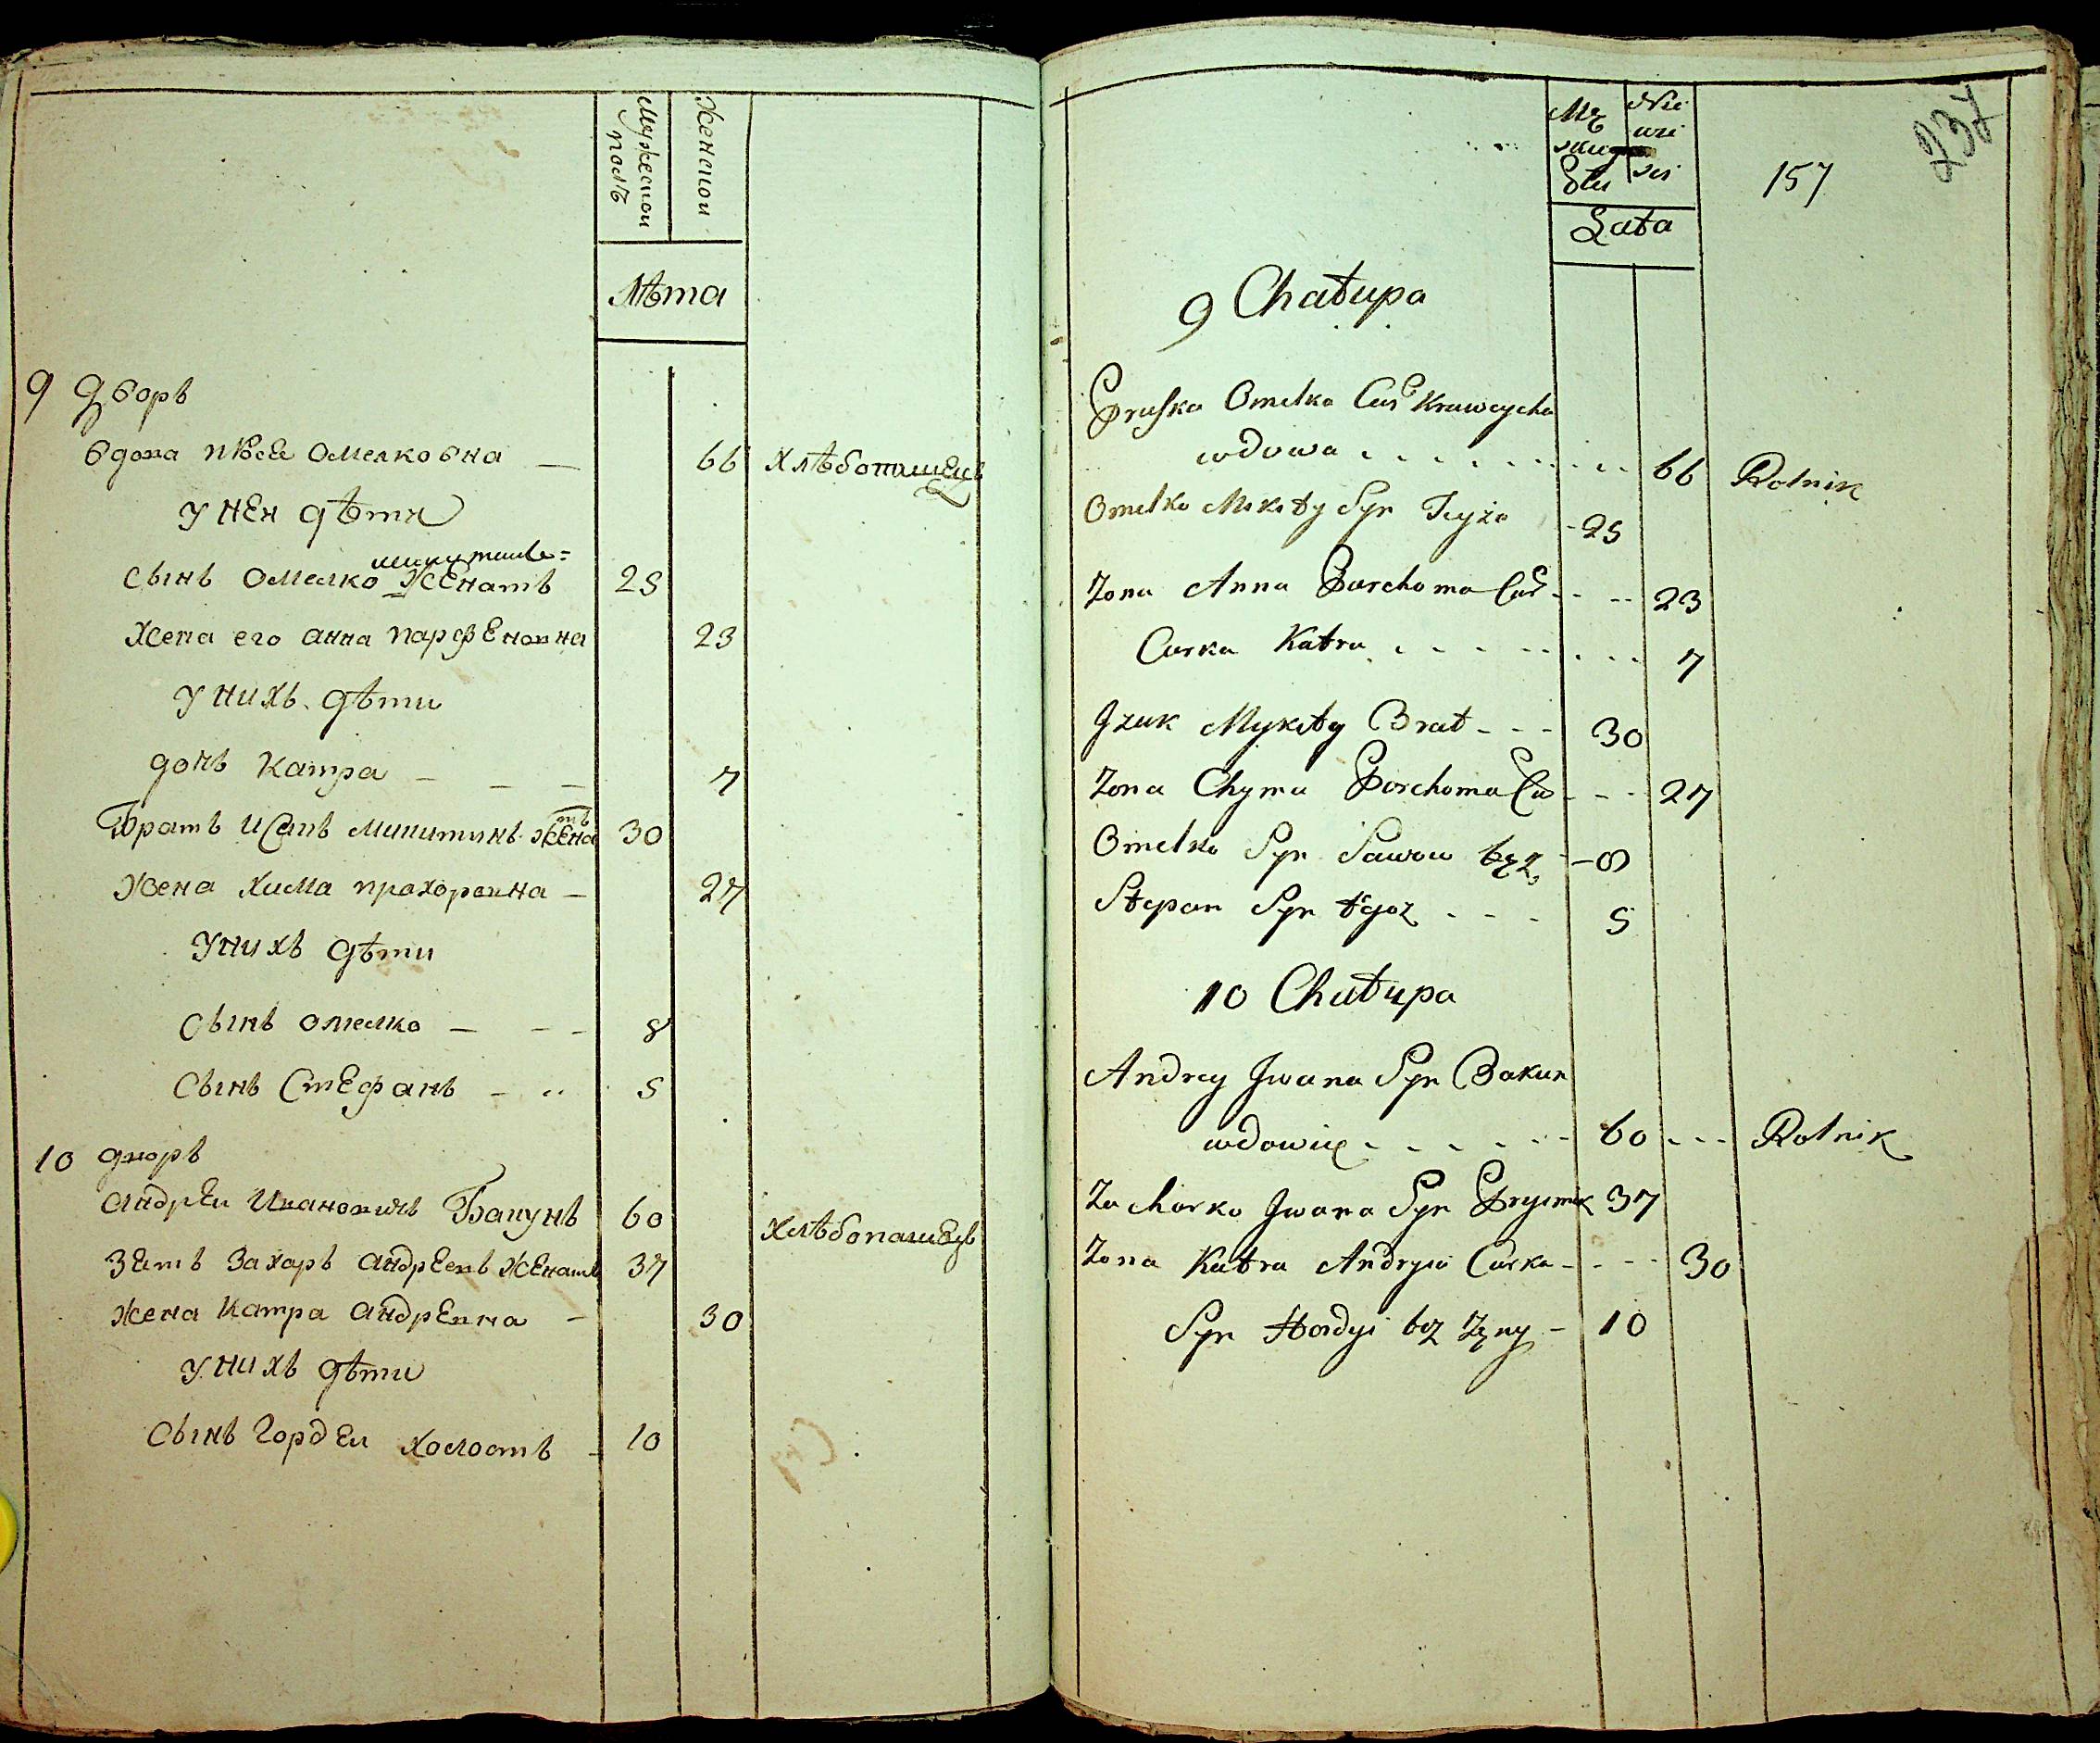 Мужеской полъ
Женской
Лѣта
9 дворъ
вдова омелковна — 66 хлѣбопашецъ
у неи дѣти
микитинъ=
сынъ омелко женатъ 25
жена его анна парфеновна 23
у нихъ дѣти
дочь катра — — — 7
братъ исакъ микитинъ женатъ 30
жена хима прохоровна — 27
у нихъ дѣти
сынъ омелко — — — 8
сынъ стефанъ — .. 5
10 дворъ
андреи ивановичъ бакунъ 60 хлѣбопашецъ
зеть захаръ андреевъ женатъ 37
жена катра андреевна — 30
у нихъ дѣти
сынъ гордеи холостъ — 10
237
157
Lata
9 Chałupa
Pruska Omelka Cur Krawcycha
wdowa 66 Rolnik
Omelko Mikity Syn Teyże - 25
Zona Anna Parchoma Cur - - - 23
Curka Katra 7
Izak Mykity Brat - - - 30
Zona Chyma Parchoma Cur - - - 27
Omelko Syn bez - 8
Stepan Syn tegoz - - - 5
10 Chałupa
Andrey Iwana Syn Bakun
wdowiec 60 - - - Rolnik
Zacharko Iwana Syn Prysmak 37
Zona Katra Andryia Curka - - - - 30
Syn Hordyi bez żeny - 10